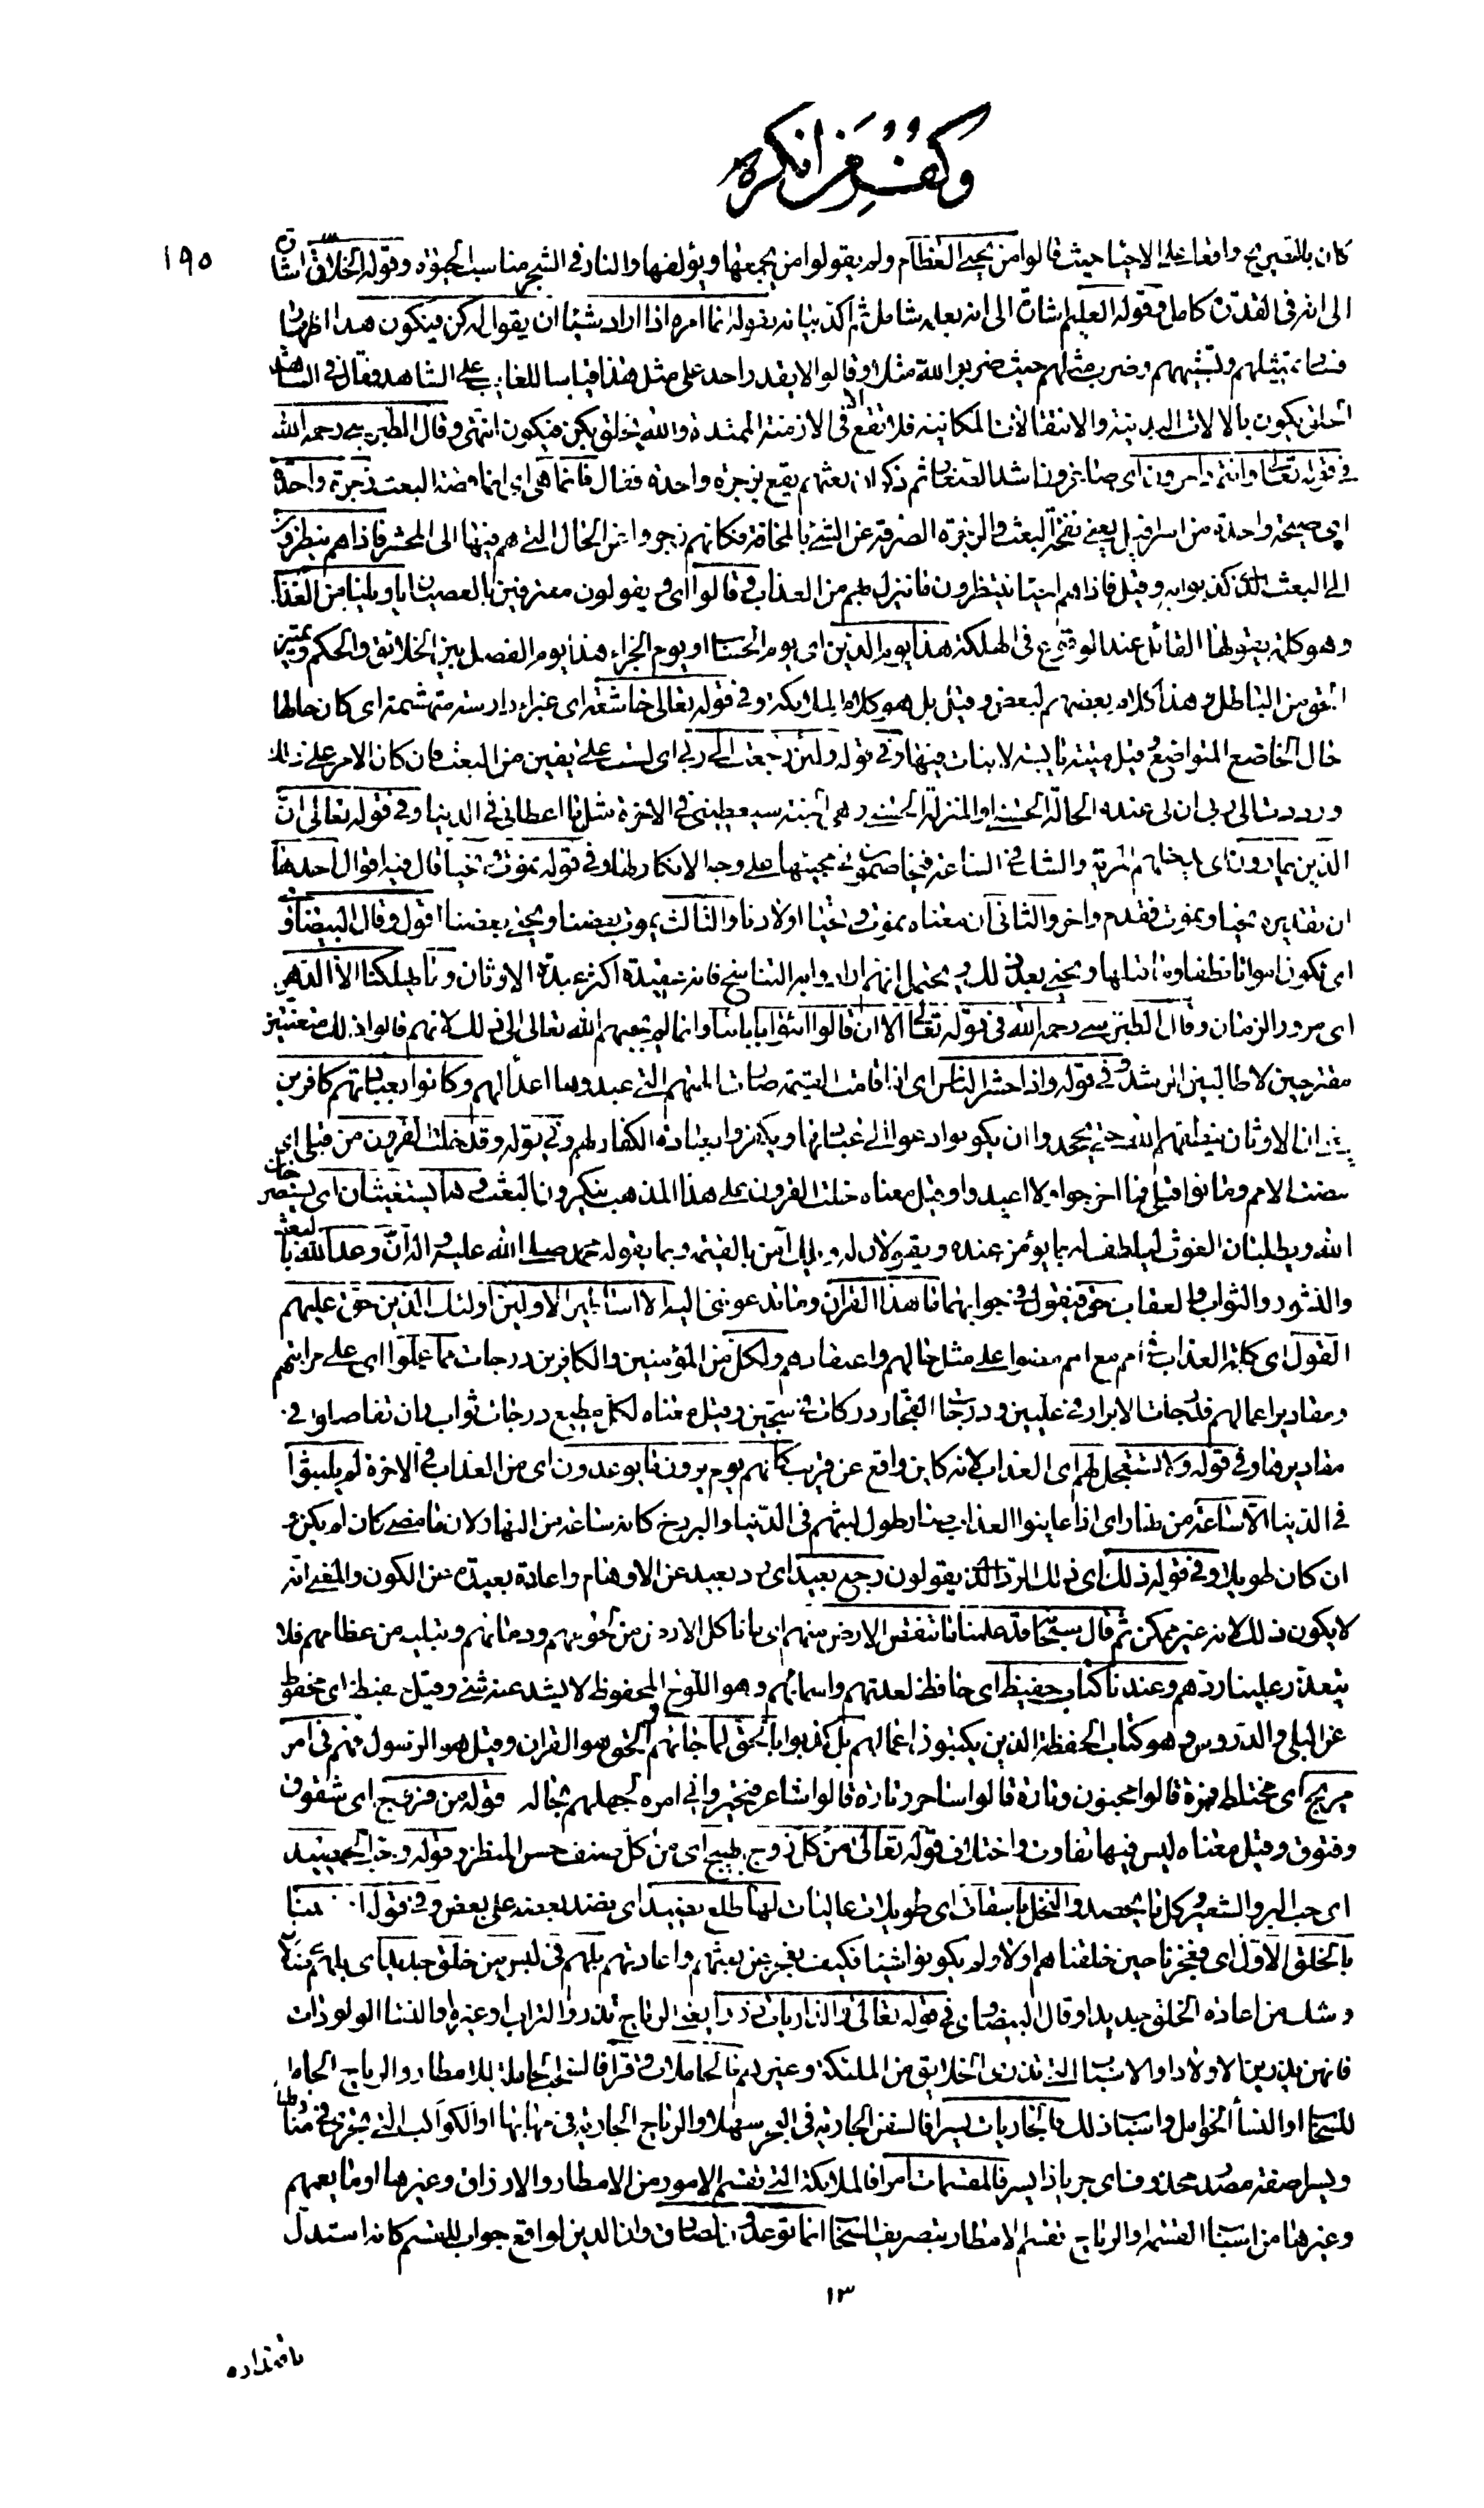 وكفر من انكره
١٩٥
كان بالتصريح واقعا على الاحياء حيث قالوا من يحيى العظام ولم يقولوا من يجمعها ويؤلفها والنار فى الشجر مناسب الحيوة وقوله الخلاق اشارة
الى انه فى القدرة كامل وقوله العليم اشارة الى انه بعلمه شامل ثم اكد بيانه بقوله انما امره اذا اراد شيئا ان يقول له كن فيكون هذا اظهار
فساد تمثيلهم وتشبيههم وضرب مثلهم حيث ضربوا لله مثلا وقالوا لا يقدر احد على مثل هذا قياسا للغايب على الشاهد فقال فى الشاهد
الخلق يكون بالالات البدنية والانتقالات المكانية فلا تقع الا فى الازمنة الممتدة والله يخلق بكن فيكون انتهى وقال الطبرسى رحمه الله
فى قوله تعالى وانتم داخرون اى صاغرون اشد الصغار ثم ذكر ان بعثهم يقع بزجرة واحدة فقال فانما هى اى انما قصة البعث زجرة واحدة
اى صيحة واحدة من اسرافيل يعنى نفخة البعث والزجرة الصرفة عن الشئ بالمخافة فكانهم زجروا عن الحال التى هم فيها الى المحشر فاذا هم ينظرون
الى البعث الذى كذبوا به وقيل فاذا هم احياء ينتظرون ما ينزل بهم من العذاب وقالوا اى ويقولون معترفين بالعصيان يا ويلنا من العذاب
وهو كلمة يقولها القائل عند الوقوع فى الهلكة هذا يوم الدين اى يوم الحساب او يوم الجزاء هذا يوم الفصل بين الخلائق والحكم وتميز
الحق من الباطل وهذا كلام بعضهم لبعض وقيل بل هو كلام الملائكة وفى قوله تعالى خاشعة اى غبراء دارسة متهشمة اى كان حالها
حال الخاضع المتواضع وقيل ميتة يابسة لا نبات فيها وفى قوله ولئن رجعت الى ربى اى لست على يقين من البعث فان كان الامر على ذلك
ورددت الى ربى ان لى عنده الحالة الحسنى او المنزلة الحسنى وهى الجنة سيعطينى فى الاخرة مثل ما اعطانى فى الدنيا وفى قوله تعالى ان
الذين يمارون اى يدخلهم المرية والشك فى الساعة فيخاصمون فى مجيئها على وجه الانكار لها وفى قوله نموت ونحيا قال فيه اقوال احدها
ان تقديره نحيا ونموت فقدم واخر والثانى ان معناه نموت ونحيا اولادنا والثالث يموت بعضنا ويحيى بعضنا اقول وقال البيضاوى
اى نكون امواتا نطفا وما قبلها ونحيى بعد ذلك ويحتمل انهم ارادوا به التناسخ فانه عقيدة اكثر عبدة الاوثان وما يهلكنا الا الدهر
اى مرور الزمان وقال الطبرسى رحمه الله فى قوله تعالى الا ان قالوا ائتوا باباءنا وانما لم يجبهم الله تعالى الى ذلك لانهم قالوا ذلك متعنتين
مقترحين لا طالبين الرشد وفى قوله واذا حشر الناس اى اذا قامت القيمة صارت الهتهم التى عبدوها اعداء لهم وكانوا بعبادتهم كافرين
يعنى ان الاوثان ينطقهم الله حتى يجحدوا ان يكونوا دعوا الى عبادتها ويكفروا بعبادة الكفار لهم وفى قوله وقد خلت القرون من قبلى اى
مضت الامم وماتوا قبلى فما اخرجوا ولا اعيدوا وقيل معناه خلت القرون على هذا المذهب ينكرون البعث وهما يستغيثان اى يستصرخان
الله ويطلبان الغوث ليلطف له بما يؤمن عنده ويقولان له ويلك آمن بالقيمة وبما يقوله محمد صلى الله عليه واله ان وعد الله بالبعث
والنشور والثواب والعقاب حق فيقول فى جوابهما ما هذا القران وما تدعوننى اليه الا اساطير الاولين اولئك الذين حق عليهم
القول اى كلمة العذاب فى امم مع امم مضوا على مثل حالهم واعتقادهم ولكل من المؤمنين والكافرين درجات مما عملوا اى على مراتبهم
ومقادير اعمالهم فدرجات الابرار فى عليين ودرجات الفجار دركات فى سجين وقيل معناه لكل مطيع درجات ثواب وان تفاضلوا فى
مقاديرها وفى قوله ولا تستعجل لهم اى العذاب لانه كاين واقع عن قريب كانهم يوم يرون ما يوعدون اى من العذاب فى الاخرة لم يلبثوا
فى الدنيا الا ساعة من نهار اى اذا عاينوا العذاب صار طول لبثهم فى الدنيا والبرزخ كانه ساعة من النهار لان ما مضى كان لم يكن و
ان كان طويلا وفى قوله ذلك اى ذلك الرد الذى يقولون رجع بعيد اى رد بعيد عن الاوهام واعادة بعيدة عن الكون والمعنى انه
لا يكون ذلك لانه غير ممكن ثم قال سبحانه قد علمنا ما تنقص الارض منهم اى ما تاكل الارض من لحومهم ودمائهم وتبليه من عظامهم فلا
يتعذر علينا ردهم وعندنا كتاب حفيظ اى حافظ لعدتهم واسمائهم وهو اللوح المحفوظ لا يشذ عنه شئ وقيل حفيظ اى محفوظ
عن البلى والدروس وهو كتاب الحفظة الذين يكتبون اعمالهم بل كذبوا بالحق لما جائهم والحق هو القران وقيل هو الرسول فهم فى امر
مريج اى مختلط فمرة قالوا مجنون وتارة قالوا ساحر وتارة قالوا شاعر فتحيروا فى امره لجهلهم بحاله قوله من فروج اى شقوق
وفتوق وقيل معناه ليس فيها تفاوت واختلاف قوله تعالى من كل زوج بهيج اى من كل صنف حسن المنظر وقوله وحب الحصيد
اى حب البر والشعير وكل ما يحصد والنخل باسقات اى طويلات عاليات لها طلع نضيد اى نضد بعضه على بعض وفى قوله افعيينا
بالخلق الاول اى افعجزنا حين خلقناهم اولا ولم يكونوا شيئا فكيف نعجز عن بعثهم واعادتهم بل هم فى لبس من خلق جديد اى بل هم فى ضلال
وشك من اعادة الخلق جديدا وقال البيضاوى فى قوله تعالى والذاريات ذروا يعنى الرياح تذرو التراب وغيره او النساء الولودات
فانهن يذرين الاولاد او الاسباب التى تذرى الخلايق من الملئكة وغيرهم فالحاملات وقرا فالسحب الحاملة للامطار والرياح الحاملة
للسحاب او النساء الحوامل واسباب ذلك فالجاريات يسرا فالسفن الجارية فى البحر سهلا والرياح الجارية فى مهابها او الكواكب التى تجرى فى منازلها
ويسرا صفة مصدر محذوف اى جريا ذا يسر فالمقسمات امرا فالملائكة التى تقسم الامور من الامطار والارزاق وغيرها او ما يعمهم
وغيرها من اسباب القسمة او الرياح تقسم الامطار بتصريف السحاب انما توعدون لصادق وان الدين لواقع جواب للقسم كانه استدل
١٣
باقتداره